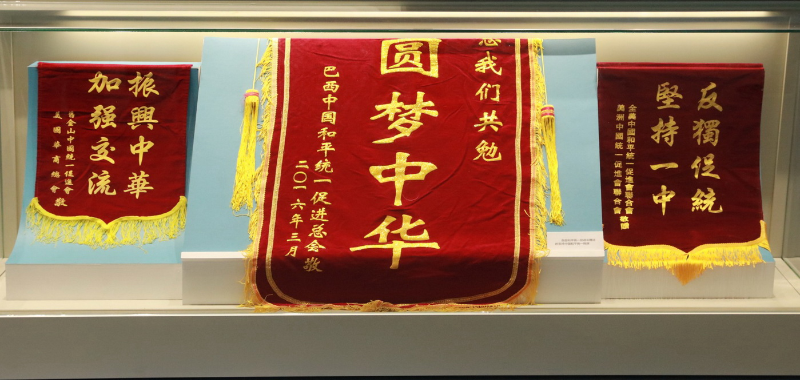 振興中華
加强交流
金山中國統一促進會
美國華商總會敬
我们共勉
圆梦中华
巴西中国和平统一促进总会敬
二〇一六年三月
反獨促統
堅持一中
全美中國和平統一促進會聯合會敬贈
美洲中國統一促進會聯合會